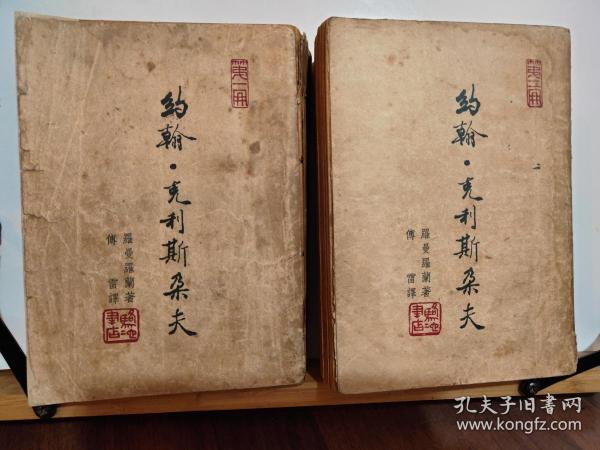 第一冊
約翰·克利斯朵夫
羅曼羅蘭著
傅雷譯
駱駝書店
約翰·克利斯朵夫
羅曼羅蘭著
傅雷譯
駱駝書店
孔夫子旧书网
www.kongfz.com